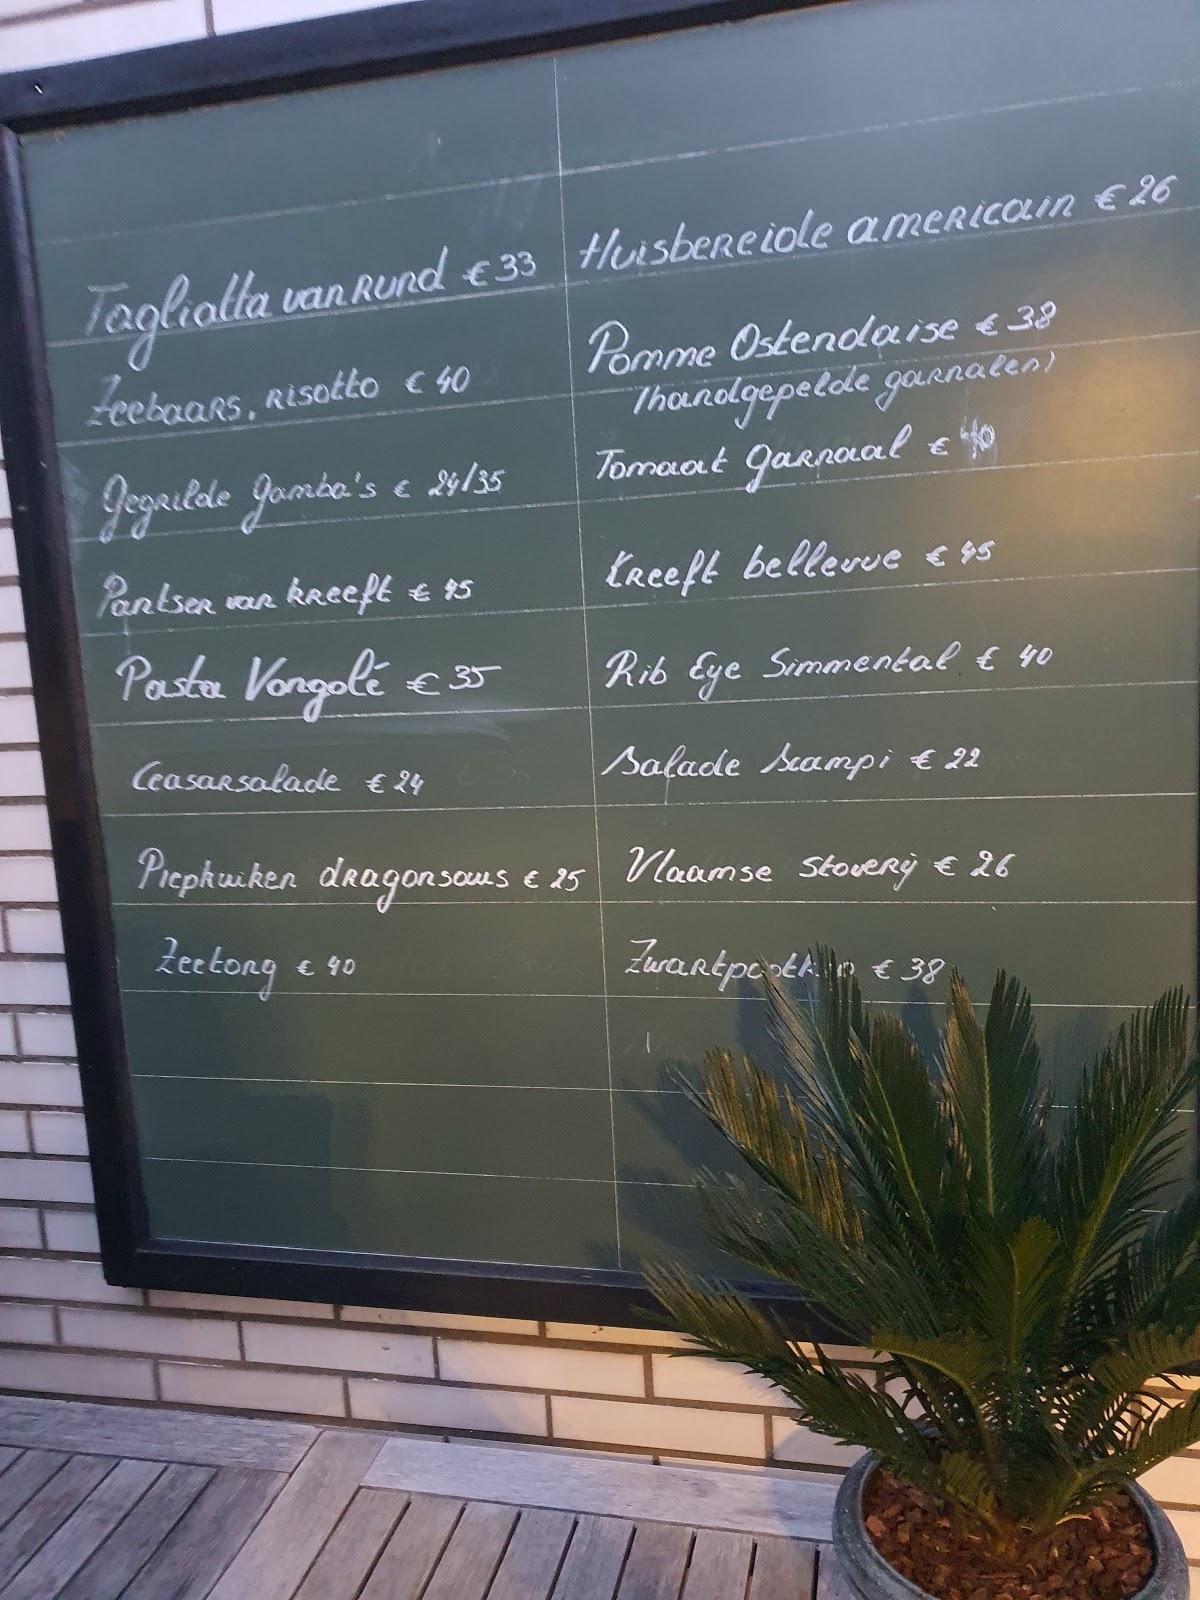 Tagliatta van Rund € 33
Zeebaars, risotto € 40
Gegrilde Gamba's € 24/35
Pantser van kreeft € 45
Pasta Vongolé € 35
Ceasarsalade € 24
Piepkuiken dragonsaus € 25
Zeetong € 40
Huisbereide americain € 26
Pomme Ostendaise € 38
(handgepelde garnalen)
Tomaat Garnaal € 40
Kreeft bellevue € 45
Rib Eye Simmental € 40
Salade Scampi € 22
Vlaamse Stoverij € 26
€ 38